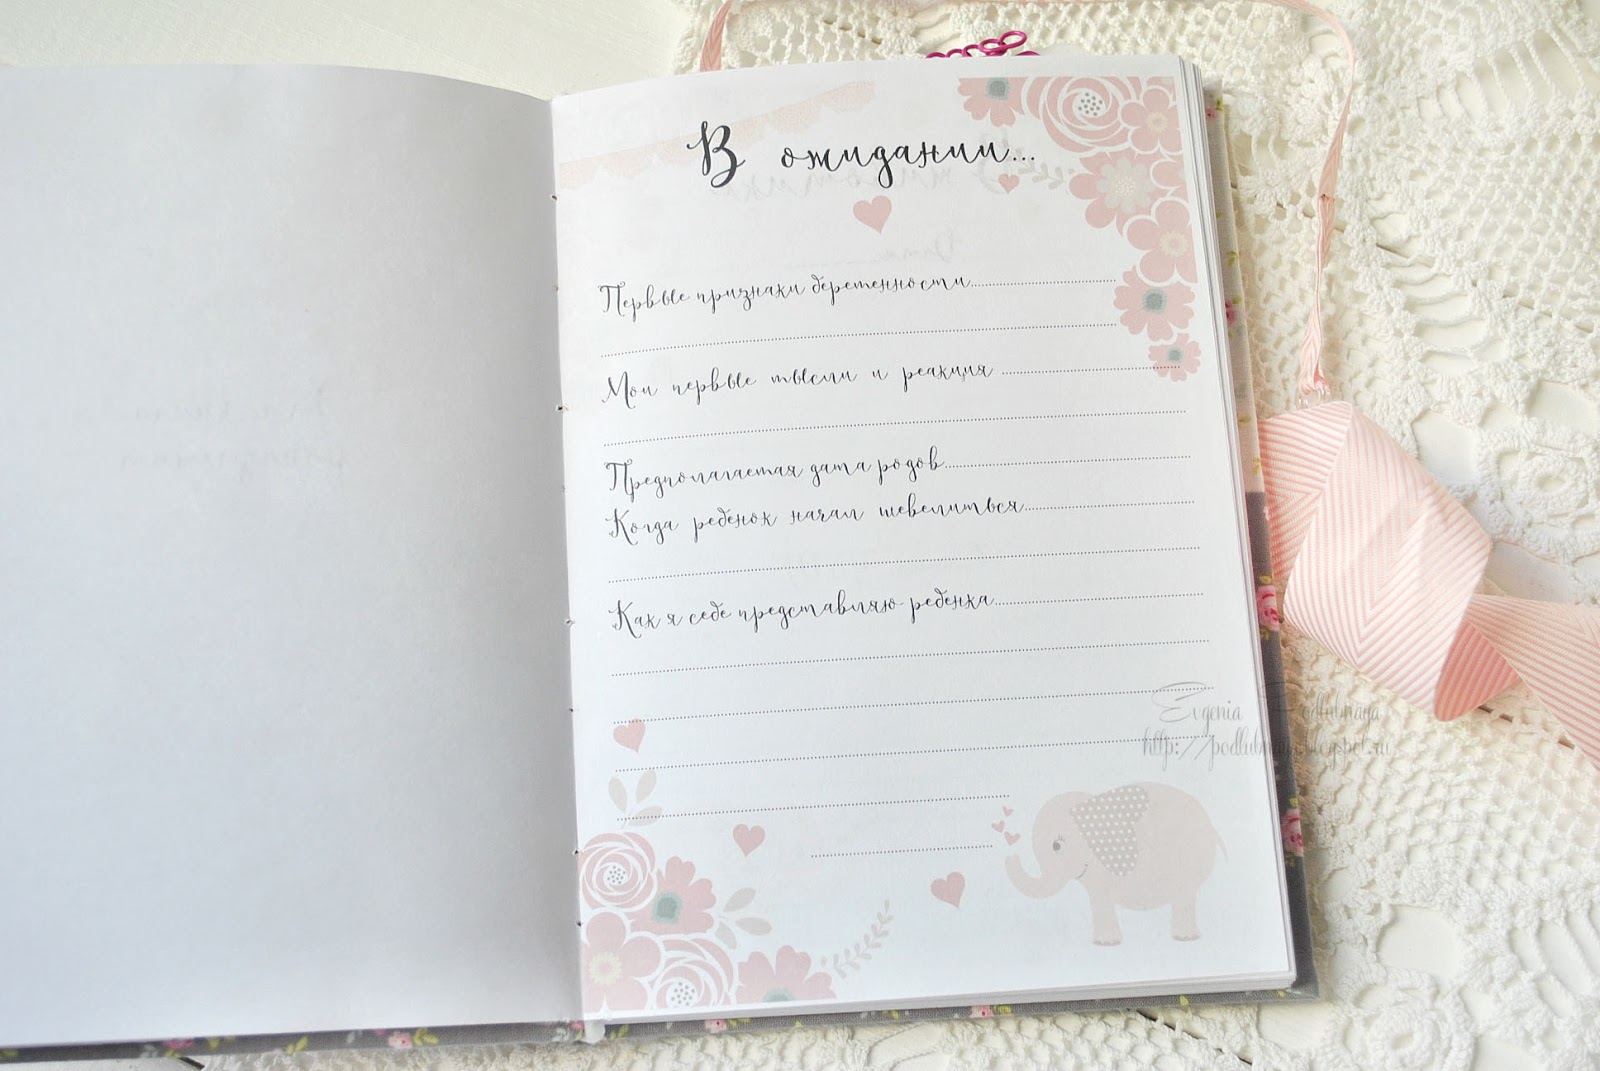 В ожидании...
Первые признаки беременности
Мои первые мысли и реакция
Предполагаемая дата родов
Когда ребенок начал шевелиться
Как я себе представляю ребенка
Evgenia Podlubnaya
http://podlubnaya.blogspot.ru